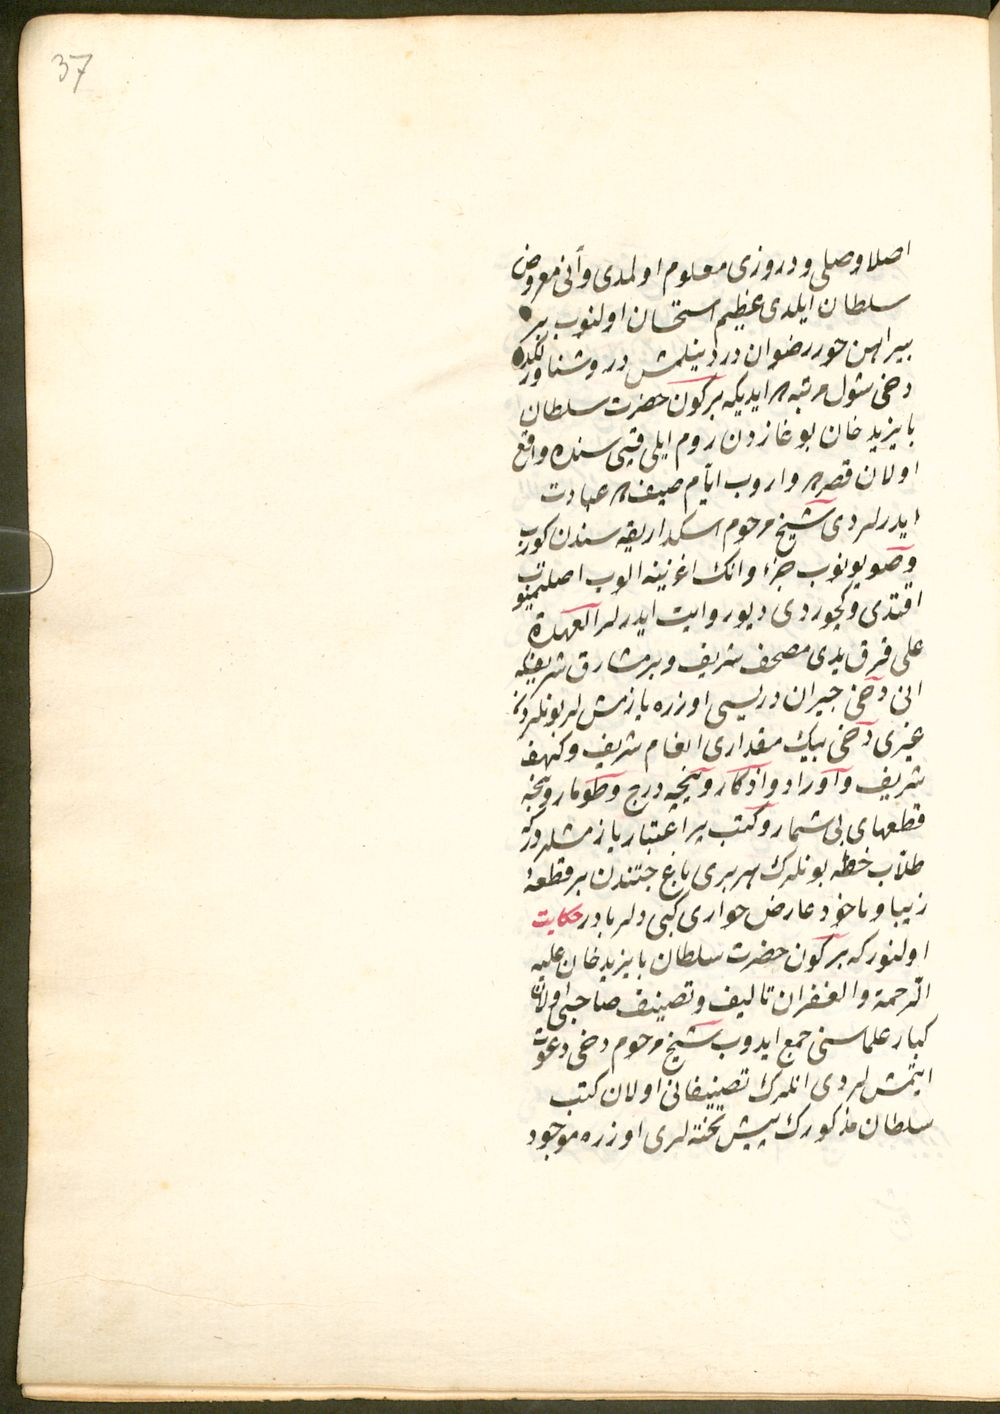 37
اصلا وصلی و دروزی معلوم اولمدی وآنی معروض
سلطان ایلدی عظیم استحسان اولنوب بر
بیراهن حور رضوان در دینلمش در وشناورلکده
دخی شول مرتبه ایدیکه برکون حضرت سلطان
بایزید خان بوغازدن روم ایلی قیی سنده واقع
اولان قصره واروب ایّام صیفده عبادت
ایدرلردی شیخ مرحوم اسکداریقه سندن کورب
وصویونوب جزء وانک اغزینه الوب اصلتمیوب
اقتدی وکچوردی دیو روایت ایدرلر العهدة
علی فرق یدی مصحف شریف وبر مشارق شریفکه
انی دخی جیران دریسی اوزره یازمش لر بونلردن
غیری دخی بیک مقداری انعام شریف وکهف
شریف وآوراد واذکار ونیجه درج وطومار ونیجه
قطعهای بی شمار وکتب پر اعتبار یازمشلردرکه
طلّاب خطه بونلرک هر بری باغ جنتدن بر قطعهٔ
زیبا ویاخود عارض حواری کبی دلربادر حکایت
اولنورکه برکون حضرت سلطان بایزید خان علیه
الرحمة والغفران تالیف وتصنیف صاحبی اولان
کبار علماسنی جمع ایدوب شیخ مرحوم دخی دعوت
ایتمش لردی انلرک تصنیفاتی اولان کتب
سلطان مذکورک پیش تخته لری اوزره موجود